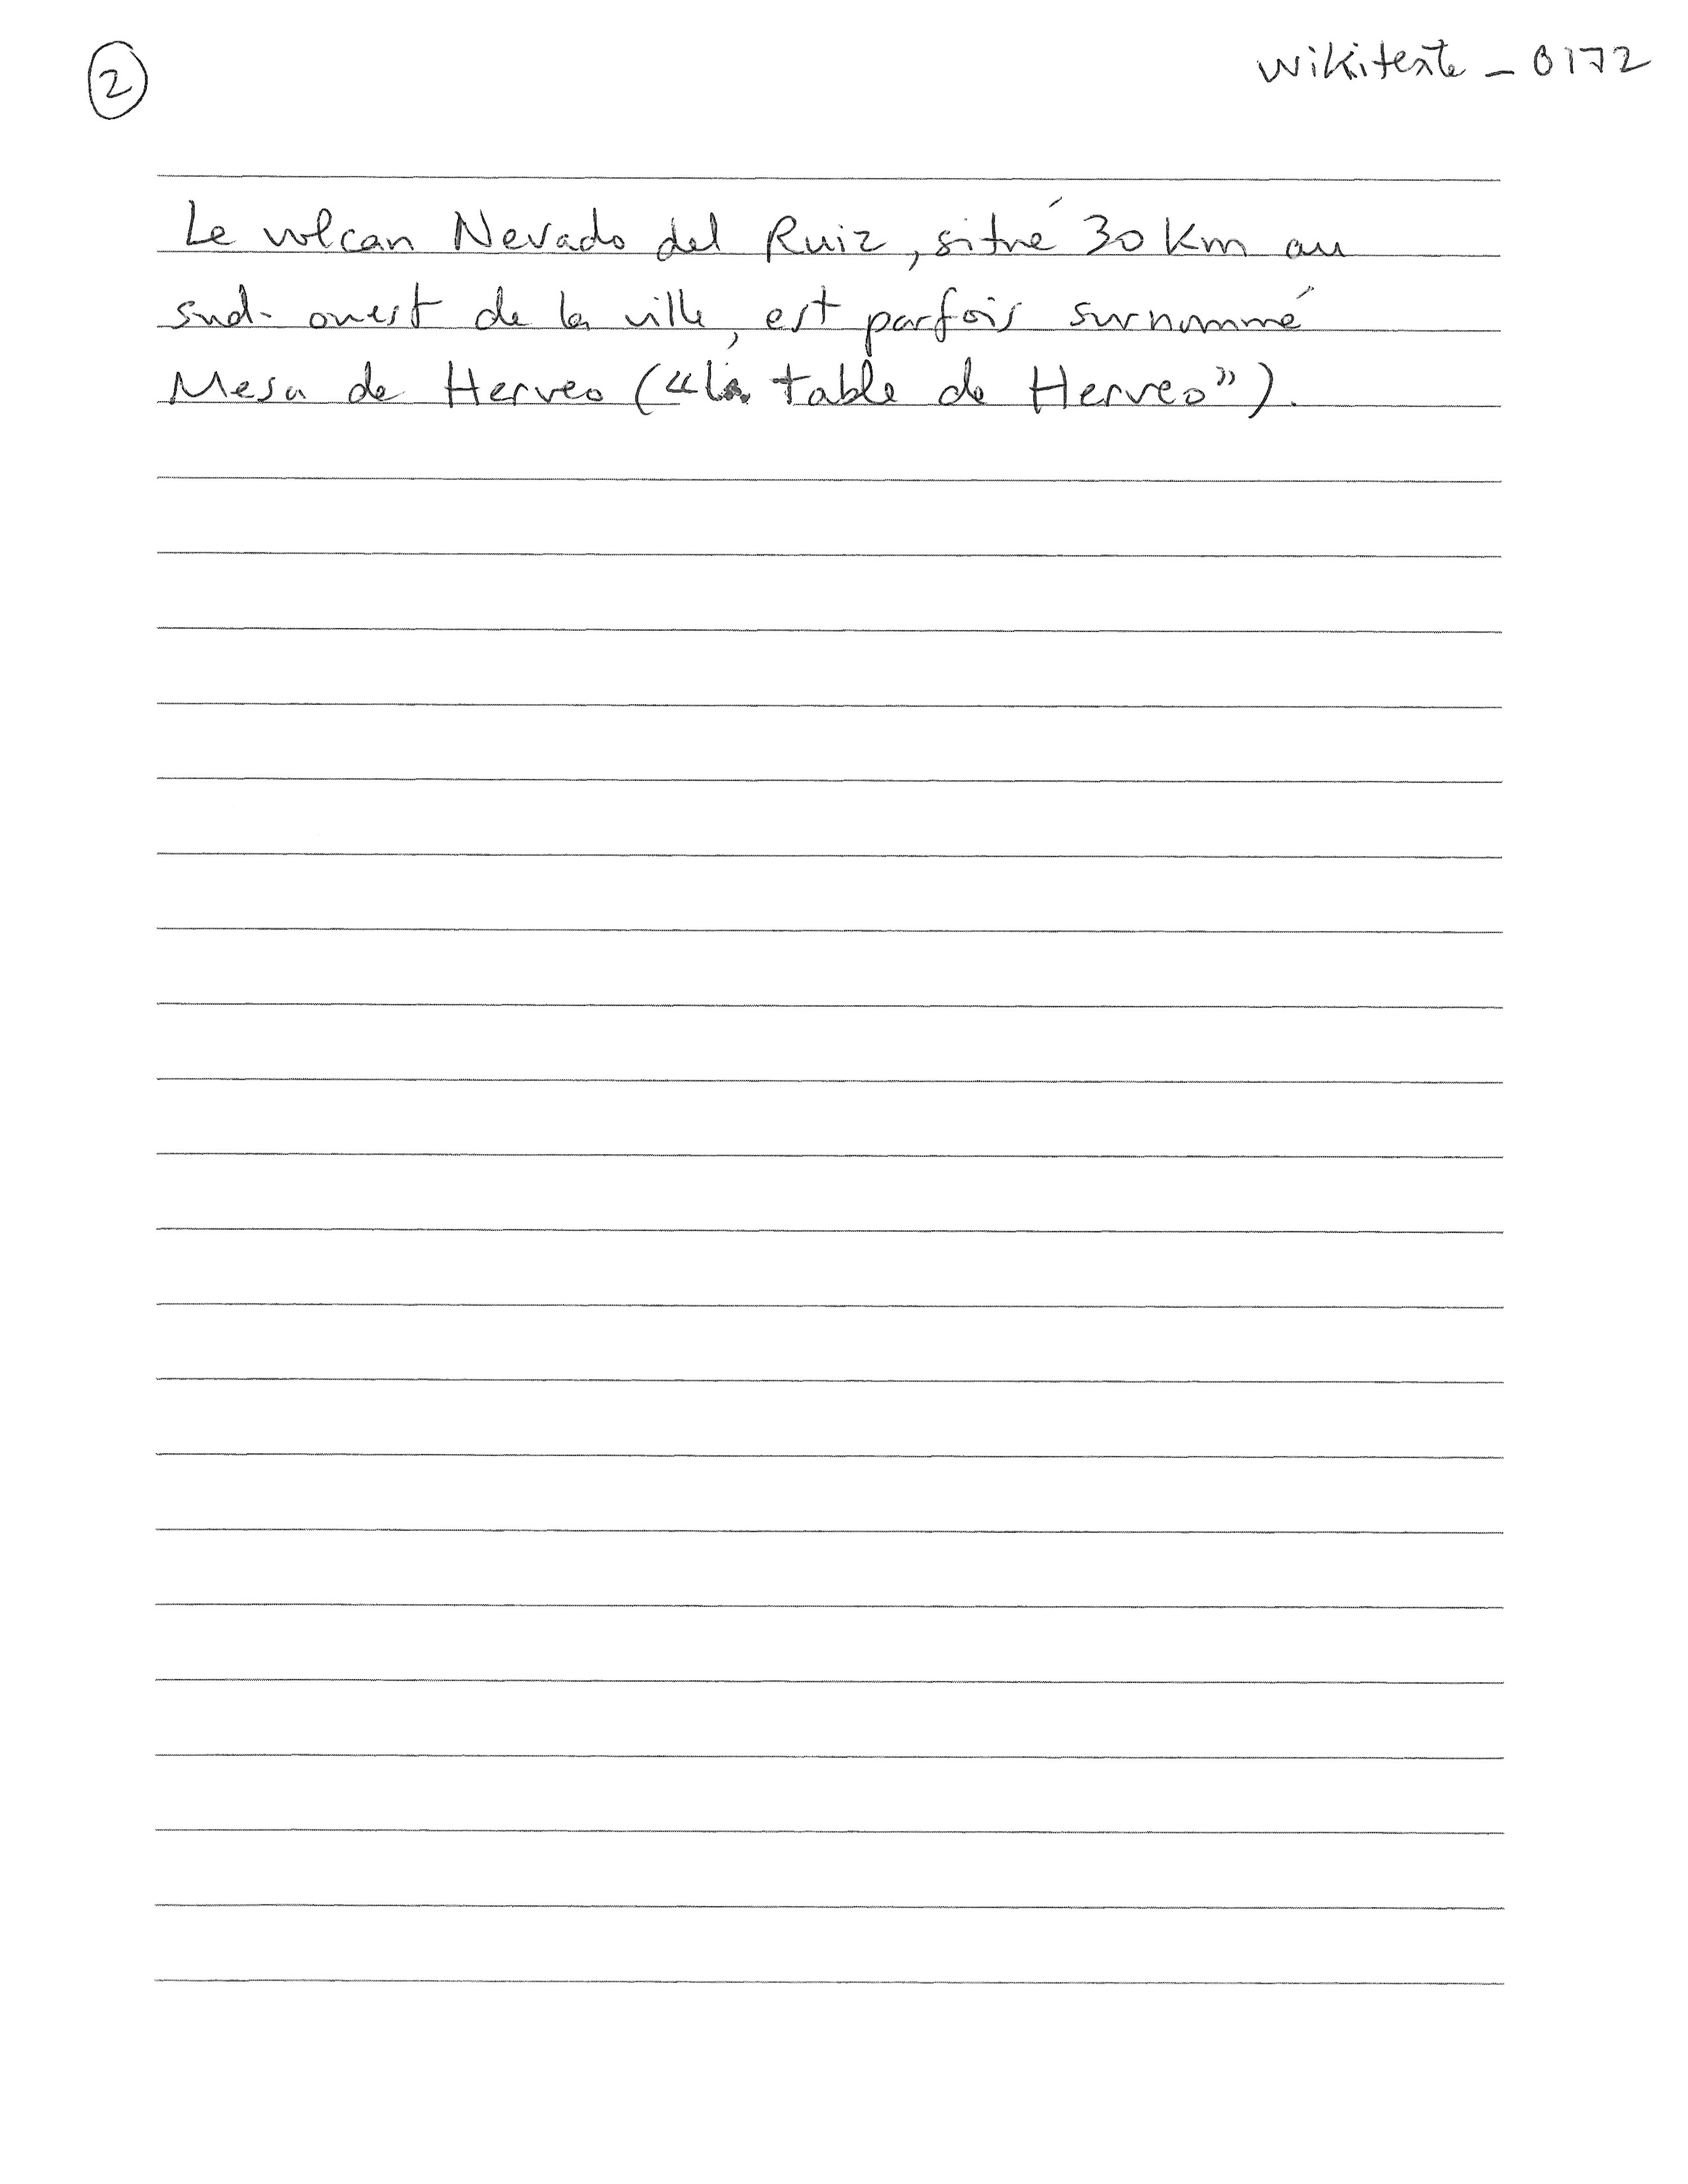 2
wikitexte_0172
Le volcan Nevado del Ruiz, situé 30 km au
sud-ouest de la ville, est parfois surnommé
Mesa de Herveo (“la table de Herveo”).